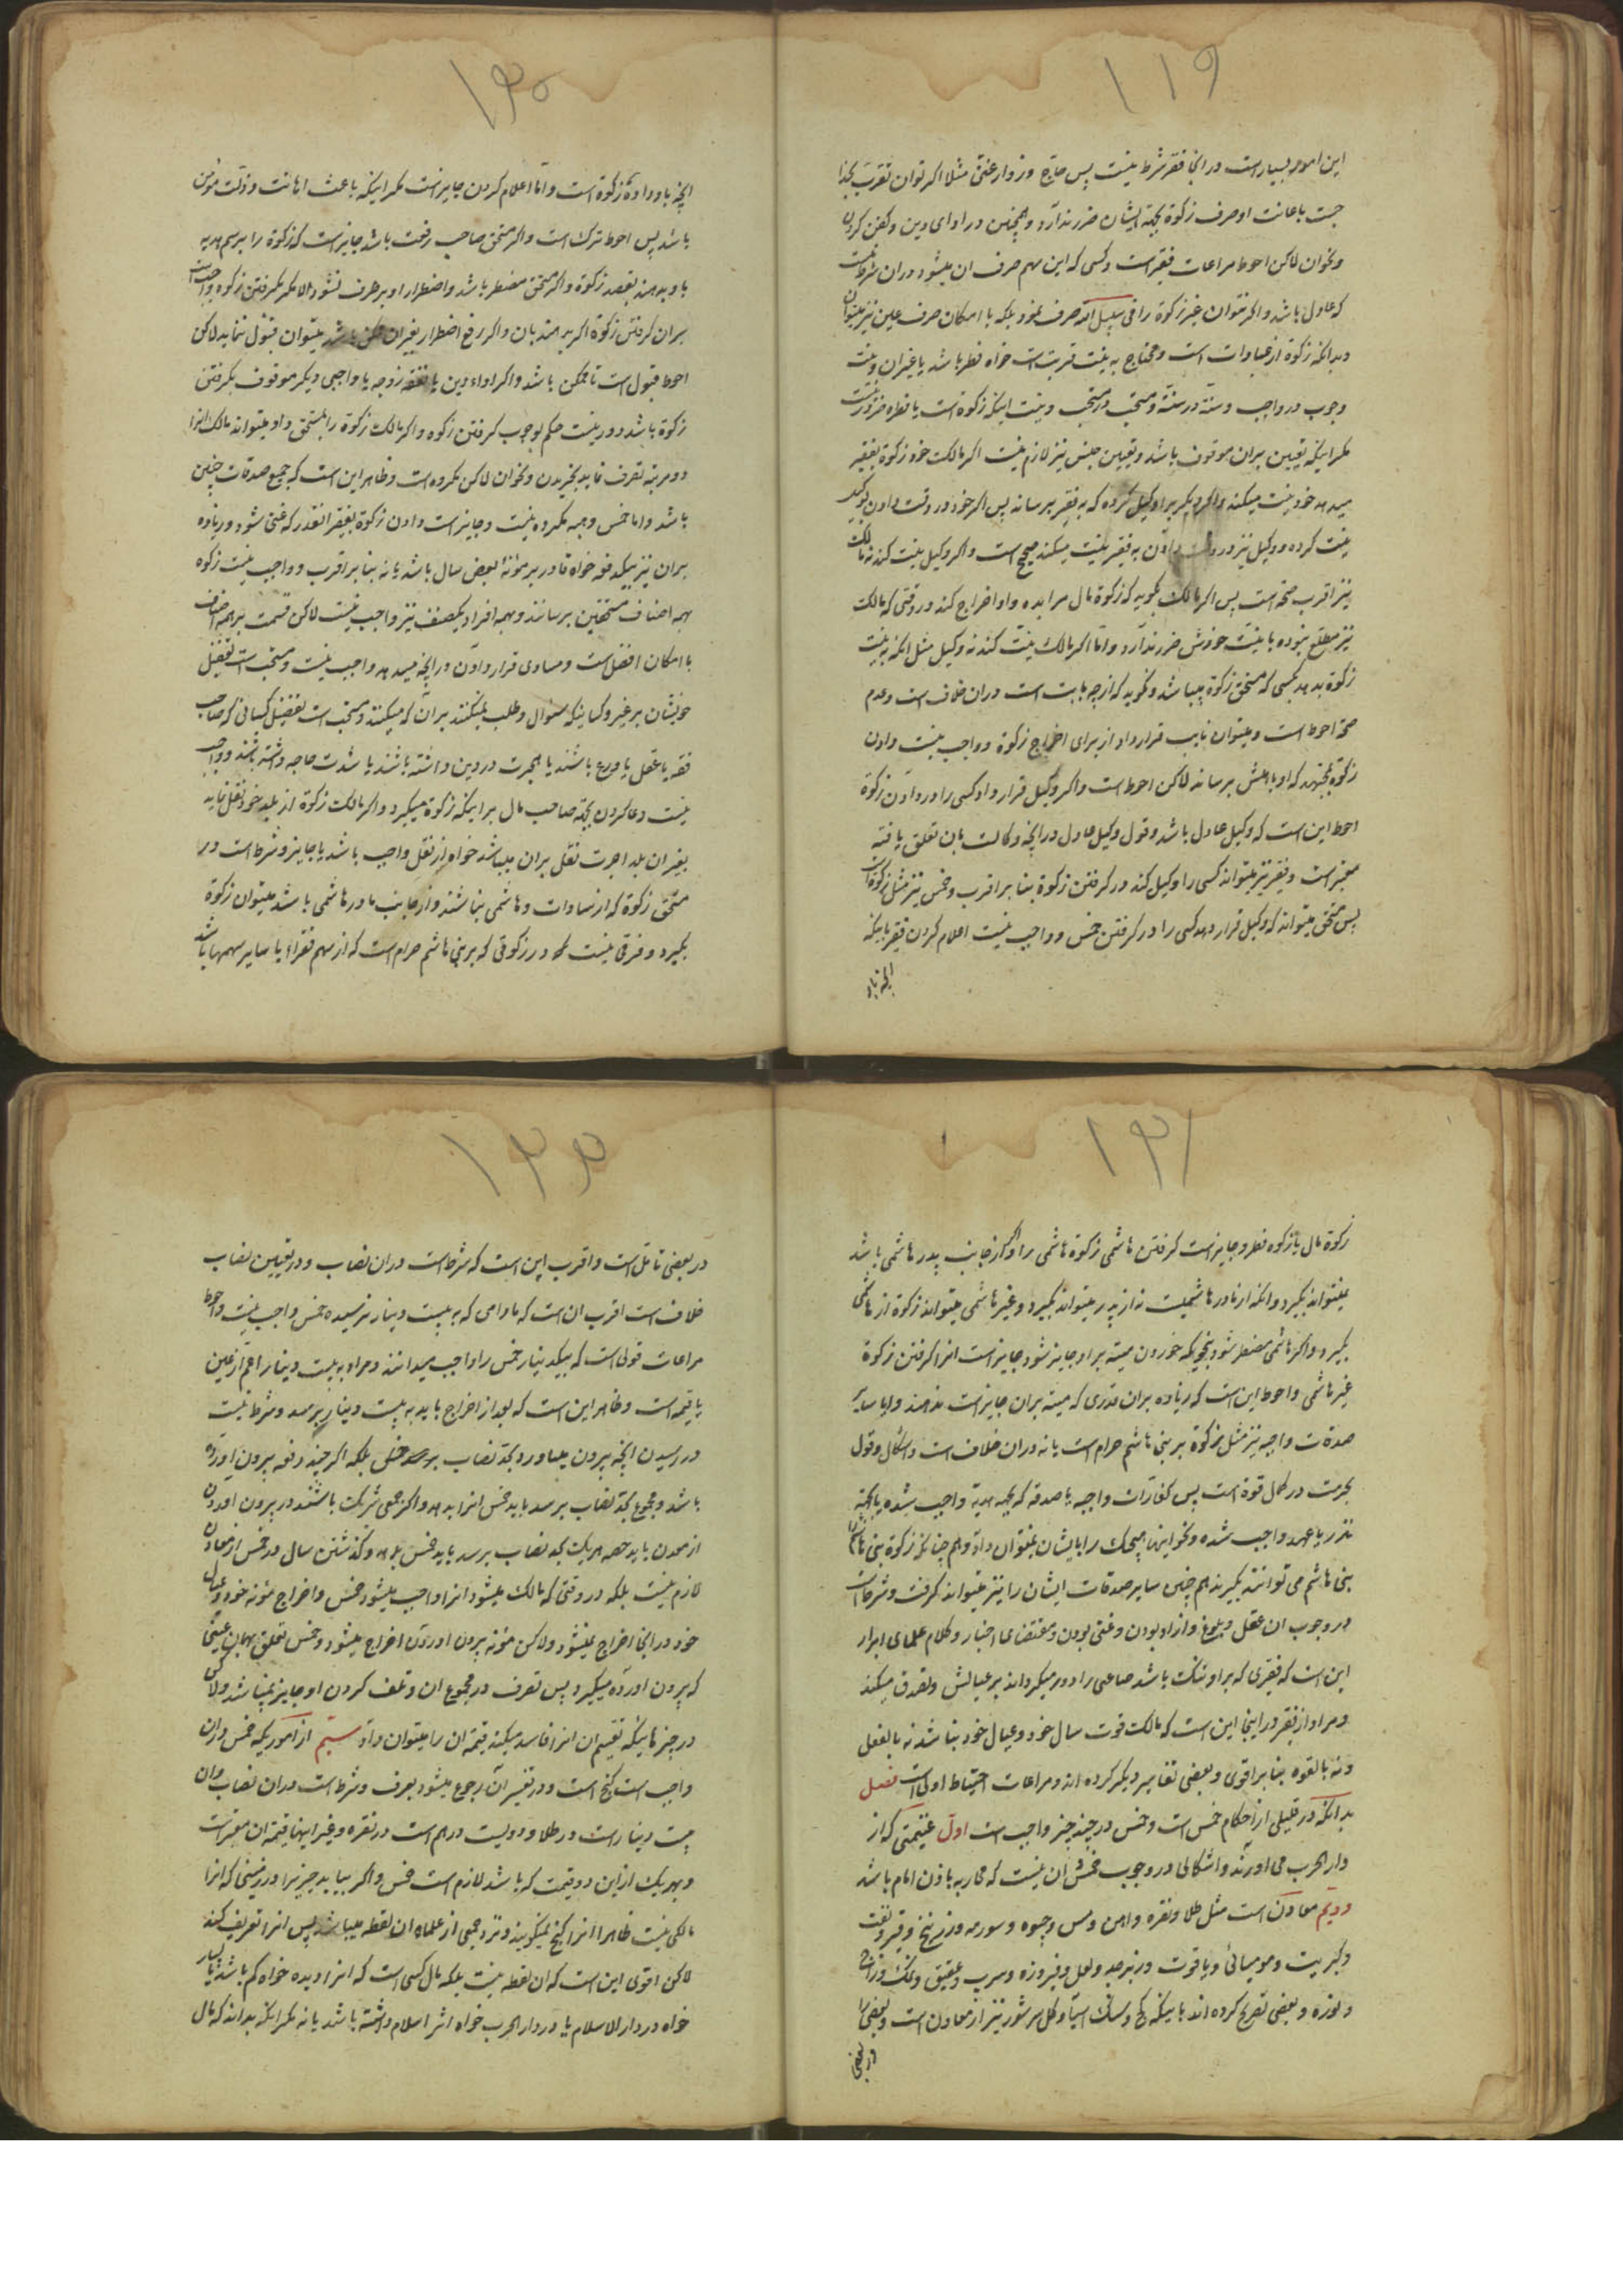 ۱۱۹
این امور بسیار است در انجا فقر شرط نیست پس حاج و زوار غنی مثلا اگر توان تقرب بخدا
جست باعانت او صرف زکوة بجهة ایشان ضرر ندارد و همچنین در ادای دین و کفن کردن
و نحوان لاکن احوط مراعات فقیر است و کسی که این سهم صرف ان میشود در ان شرط نیست
که عادل باشد و اگر نتوان غیر زکوة را فی سبیل الله صرف نمود بلکه با امکان صرف عین نیز میتوان
و بدانکه زکوة از عبادات است و محتاج به نیت قربت است خواه فطر باشد یا غیر ان و نیت
وجوب در واجب و سنة در سنة و مستحب در مستحب و نیت اینکه زکوة است یا فطره ضرور نیست
مگر اینکه تعیین بر ان موقوف باشد و تعیین جنس نیز لازم نیست اگر مالک خود زکوة بفقیر
میدهد خود نیت میکند و اگر دیگریرا وکیل کرده که به فقیر برساند پس اگر خود در وقت دادن بوکیل
نیت کرده و وکیل نیز در وقت دادن به فقیر نیت میکند صحیح است و اگر وکیل نیت کند نه مالک
نیز اقرب صحة است پس اگر مالک بگوید که زکوة مال مرا بده و او اخراج کند در وقتی که مالک
نیز مطلع نبوده با نیت خودش ضرر ندارد و اما اگر مالک نیت کند نه وکیل مثل انکه به نیت
زکوة بدهد بکسی که مستحق زکوة میباشد و نگوید که از چه بابت است در ان خلاف است و عدم
صحة احوط است و میتوان نایب قرار داد از برای اخراج زکوة و واجب نیست دادن
زکوة بمجتهد که او باهلش برساند لاکن احوط است و اگر وکیل قرار داد کسی را در دادن زکوة
احوط این است که وکیل عادل باشد و قول وکیل عادل در انچه وکالت بان تعلق یافته
معتبر است و فقیر نیز میتواند کسی را وکیل کند در گرفتن زکوة بنابر اقرب و خمس نیز مثل زکوة است
پس مستحق میتواند که وکیل قرار دهد کسی را در گرفتن خمس و واجب نیست اعلام کردن فقیر باینکه
انچه باو
۱۲۰
انچه باو داده زکوة است و اما اعلام کردن جایز است مگر اینکه باعث اهانت و ذلت مؤمن
باشد پس احوط ترک است و اگر مستحق صاحب رفعت باشد جایز است که زکوة را برسم هدیه
باو بدهند بقصد زکوة و اگر مستحق مضطر باشد و اضطرار او برطرف نشود الا مگر بگرفتن زکوة واجب است
بر ان گرفتن زکوة اگر بدهند بان و اگر رفع اضطرار بغیر ان ممکن باشد میتوان قبول ننماید لاکن
احوط قبول است تا ممکن باشد و اگر اداء دین یا نفقه زوجه یا واجبی دیگر موقوف بگرفتن
زکوة باشد دور نیست حکم بوجوب گرفتن زکوه و اگر مالک زکوة را بمستحق داد میتواند مالک انرا
دو مرتبه تصرف نماید بخریدن و نحو ان لاکن مکروه است و ظاهر این است که جمیع صدقات چنین
باشد و اما خمس و هبه مکروه نیست و جایز است دادن زکوة بفقیر انقدر که غنی شود و زیاده
بر ان نیز بیکدفعه خواه قادر بر مؤنة بعض سال باشد یا نه بنابر اقرب و واجب نیست زکوه
بهمه اصناف مستحقین برسانند و بهمه افراد یکصنف نیز واجب نیست لاکن قسمت بر همه اصناف
با امکان افضل است و مساوی قرار دادن در انچه میدهد واجب نیست و مستحب است تفضیل
خویشان بر غیر و کسانیکه سؤال و طلب نمیکنند بر ان که میکنند و مستحب است تفضیل کسانی که صاحب
فقه یا عقل یا ورع باشند یا هجرت در دین داشته باشند یا شدت حاجه داشته باشند و واجب
نیست دعا کردن بجهة صاحب مال برا اینکه زکوة میگیرد و اگر مالک زکوة از بلد خود نقل نماید
بغیر ان بلد اجرت نقل بر ان میباشد خواه از نقل واجب باشد یا جایز و شرط است در
مستحق زکوة که از سادات و هاشمی نباشند و از جانب مادر هاشمی باشد میتوان زکوة
بگیرد و فرقی نیست در زکوتی که بر بنی هاشم حرام است که از سهم فقراء یا سایر سهمها باشد
۱۲۱
زکوة مال یا زکوه فطر و جایز است گرفتن هاشمی زکوة هاشمی را و اگر از جانب پدر هاشمی باشد
نمیتواند بگیرد و انکه از مادر هاشمیست نه از پدر میتواند بگیرد و غیر هاشمی میتواند زکوة از هاشمی
بگیرد و اگر هاشمی مضطر شود بنحویکه خوردن میته بر او جایز شود جایز است انرا گرفتن زکوة
غیر هاشمی و احوط این است که زیاده بر ان قدری که میته بر ان جایز است ندهند و ایا سایر
صدقات واجبه نیز مثل زکوة بر بنی هاشم حرام است یا نه در ان خلاف است و اشکال و قول
بحرمت در کمال قوة است پس کفارات واجبه یا صدقه که بجهة هدیة واجب شده یا بجهة
نذر یا عهد واجب شده و نحو اینها هیچیک را بایشان نمیتوان داد و هم چنانکه زکوة بنی هاشم
بنی هاشم می توانند بگیرند هم چنین سایر صدقات ایشان را نیز میتواند گرفت و شرط است
در وجوب ان عقل و بلوغ و ازاد بودن و غنی بودن و مقتضای اخبار و کلام علمای ابرار
این است که فقیری که بر او تنگ باشد صاعی را دور میگرداند بر عیالش و تصدق میکند
و مراد از فقر در اینجا این است که مالک قوت سال خود و عیال خود نباشد نه بالفعل
و نه بالقوه بنابر اقوی و بعضی تفاسیر دیگر کرده اند و مراعات احتیاط اولی است فصل
بدانکه در قلیلی از احکام خمس است و خمس در چند چیز واجب است اول غنیمتی که از
دار الحرب می اورند و اشکالی در وجوب خمس ان نیست که محاربه باذن امام باشد
دویم معادن است مثل طلا و نقره و اهن و مس و جیوه و سورمه و زرنیخ و قیر و نفت
و کبریت و مومیائی و یاقوت و زبرجد و لعل و فیروزه و سرب و عقیق و نمک و زاج
و نوره و بعضی تصریح کرده اند باینکه گچ و سنگ اسیا و گل سرشور نیز از معادن است و بعضی را
در بعضی
۱۲۲
در بعضی تامل است و اقرب این است که شرط است در ان نصاب و در تعیین نصاب
خلاف است اقرب ان است که مادامی که به بیست دینار نرسیده خمس واجب نیست و احوط
مراعات قولی است که بیکدینار خمس را واجب میدانند و مراد به بیست دینار اعم از عین
یا قیمة است و ظاهر این است که بعد از اخراج باید به بیست دینار برسد و شرط نیست
در رسیدن انچه بیرون میاورد بحد نصاب بلکه اگر چند دفعه بیرون اورده
باشد و مجموع بحد نصاب برسد باید خمس انرا بدهد و اگر جمعی شریک باشند در بیرون اوردن
از معدن باید حصه هر یک بحد نصاب برسد باید خمس بدهد و گذشتن سال در خمس از معادن
لازم نیست بلکه در وقتی که مالک میشود انرا واجب میشود خمس و اخراج مؤنه خود و عیال
خود در انجا اخراج نمیشود و لاکن مؤنه بیرون اوردن اخراج میشود و خمس تعلق بهمان عینی
که بیرون اورده میگیرد پس تصرف در مجموع ان و تلف کردن او جایز نمیباشد ولاکن
در چیزهائیکه تقسیم ان انرا فاسد میکند قیمة ان را میتوان داد سیم از اموریکه خمس در ان
واجب است گنج است و در تفسیر ان رجوع میشود بعرف و شرط است در ان نصاب و ان
بیست دینار است در طلا و دویست درهم است در نقره و غیر اینها قیمة ان معتبر است
و بهر یک از این دو قیمت که باشد لازم است خمس و اگر بیابد چیزیرا در زمینی که انرا
مالکی نیست ظاهرا انرا گنج نمیگویند و نزد جمعی از علماء ان لقطه میباشد پس انرا تعریف کند
لاکن اقوی این است که ان لقطه نیست بلکه مال کسی است که انرا دیده خواه کم باشد یا بسیار
خواه در دار الاسلام یا در دار الحرب خواه اثر اسلام داشته باشد یا نه مگر انکه بداند که مال